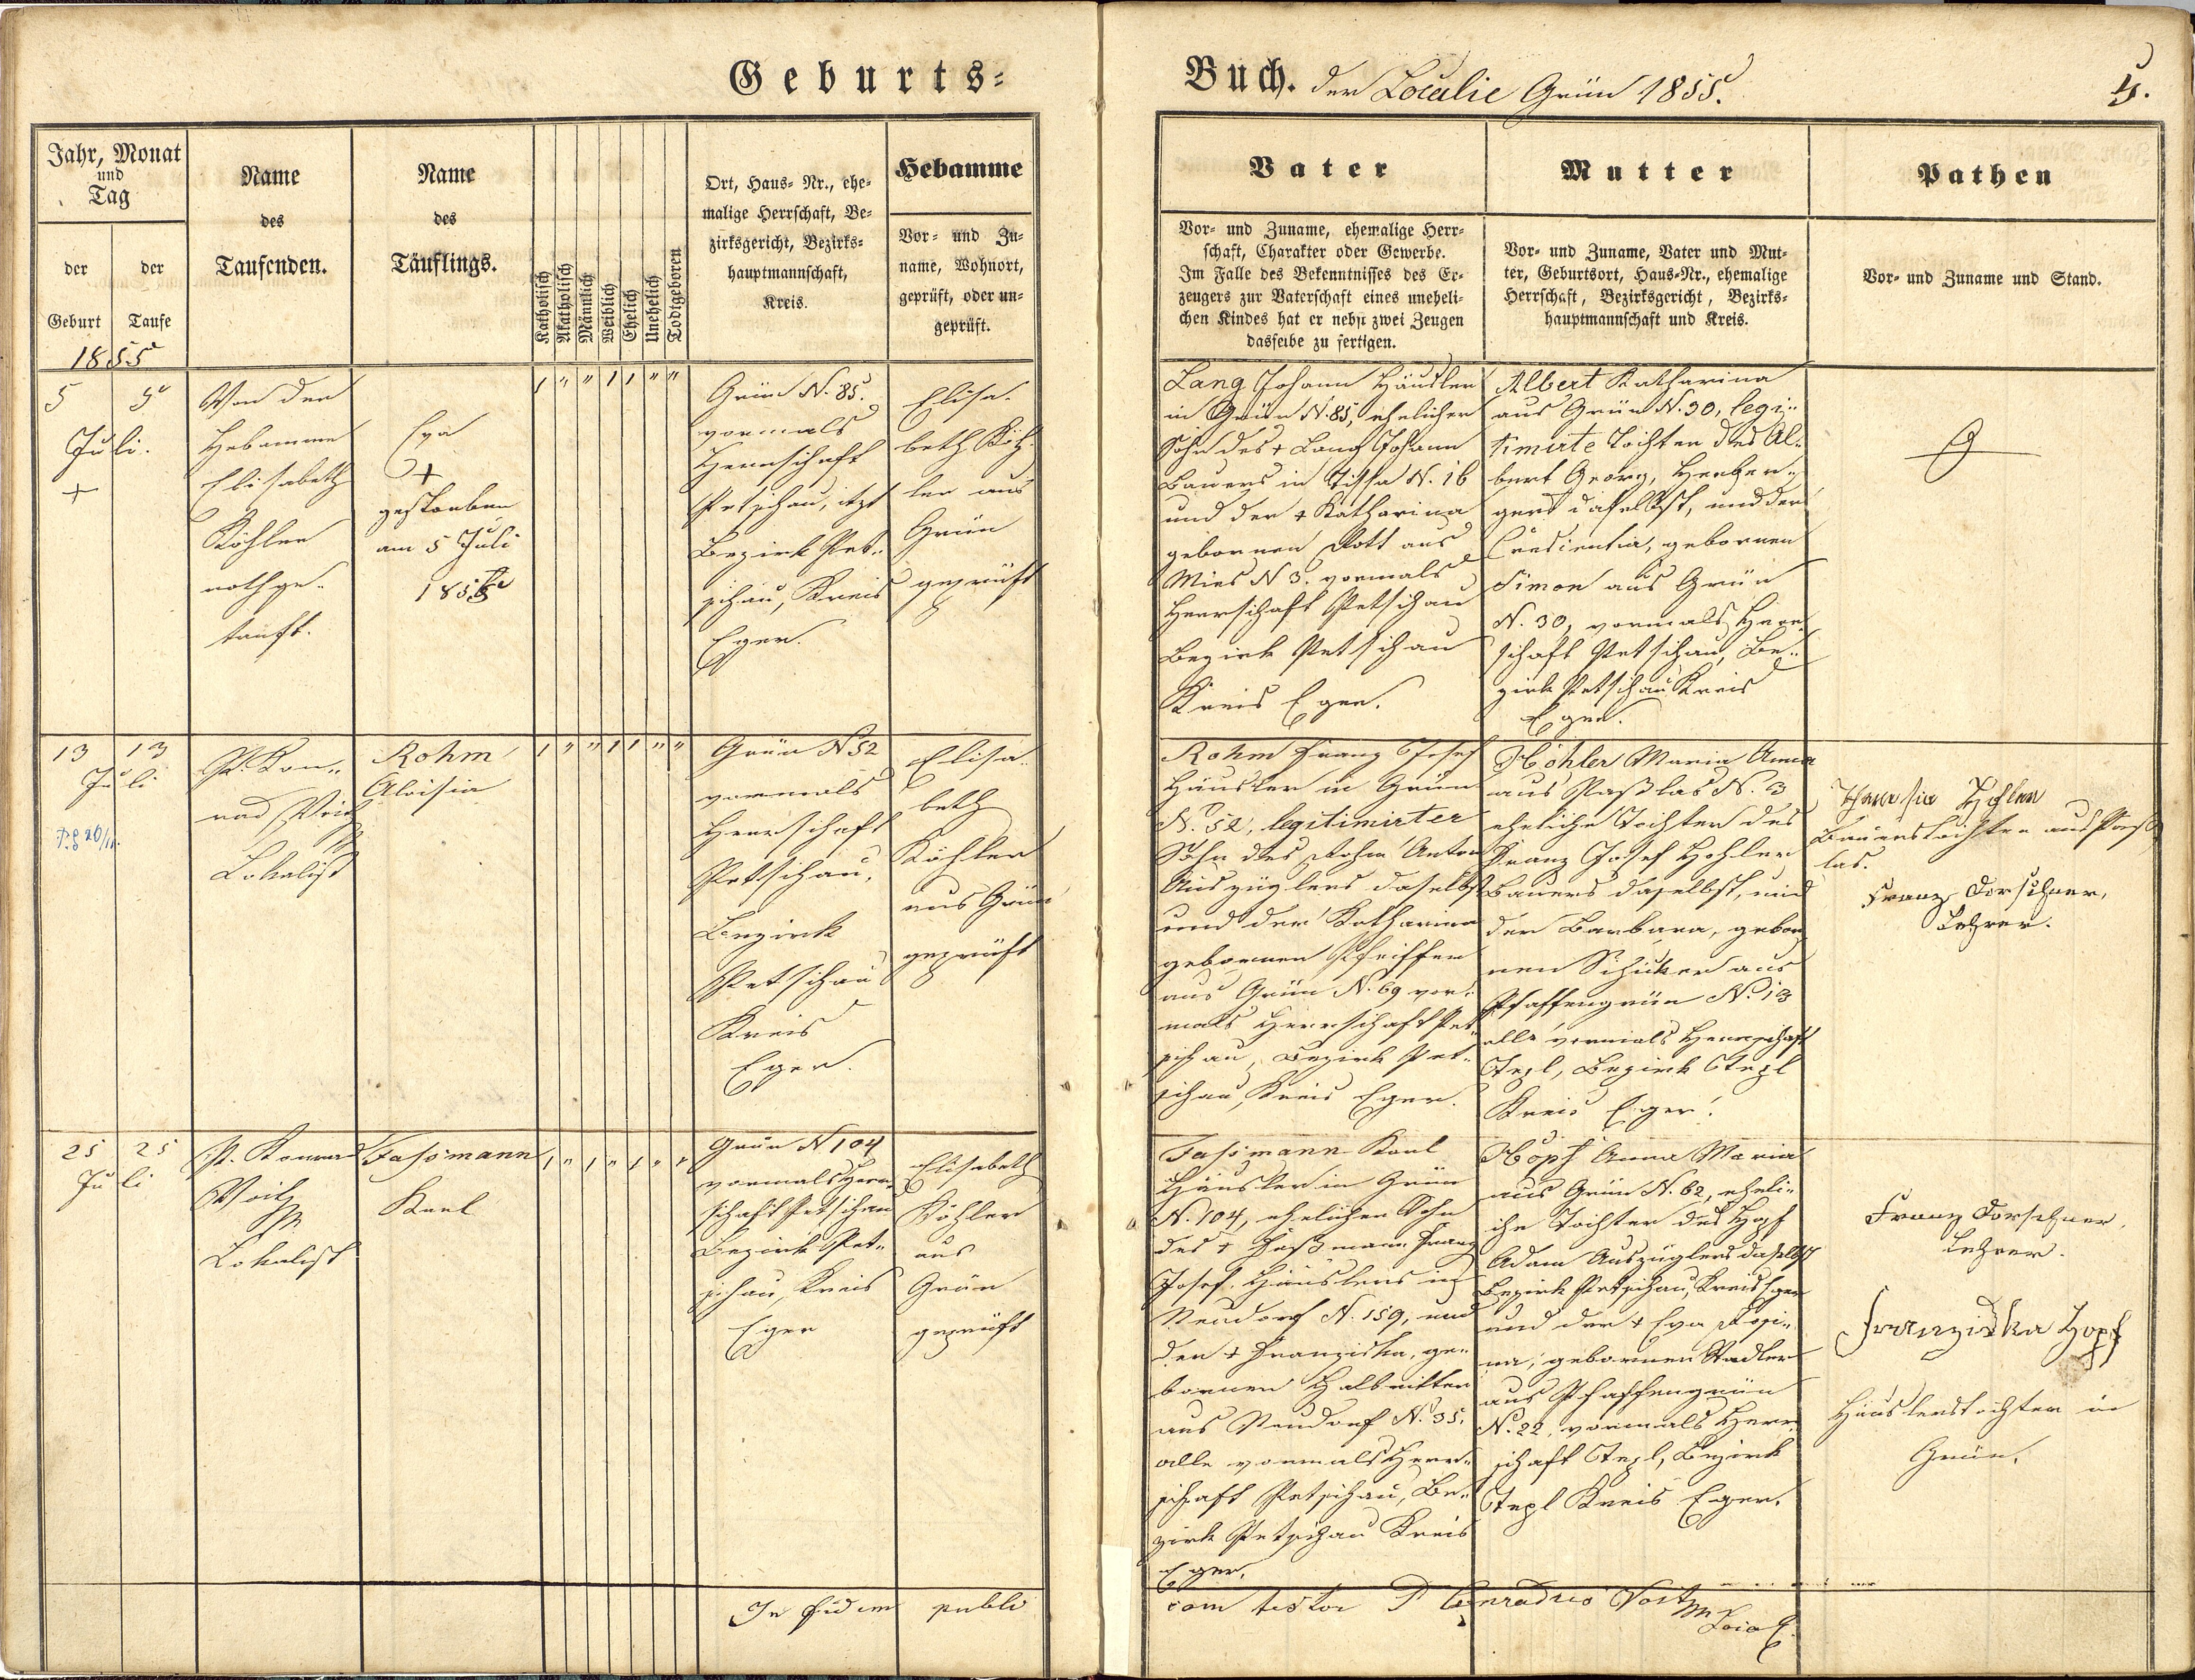 Geburts=
Buch. der Localie Grün 1855.
5.
Jahr, Monat
und
Tag
der Geburt
der Taufe
1855
Name
des
Taufenden.
Name
des
Täuflings.
Katholisch
Akatholisch
Männlich
Weiblich
Ehelich
Unehelich
Todtgeboren
Ort, Haus= Nr., ehe=
malige Herrschaft, Be=
zirksgericht, Bezirks=
hauptmannschaft,
Kreis.
Hebamme
Vor= und Zu=
name, Wohnort,
geprüft, oder un=
geprüft.
Vater
Vor= und Zuname, ehemalige Herr=
schaft, Charakter oder Gewerbe.
Im Falle des Bekenntnisses des Er=
zeugers zur Vaterschaft eines uneheli=
chen Kindes hat er nebst zwei Zeugen
dasselbe zu fertigen.
Mutter
Vor= und Zuname, Vater und Mut=
ter, Geburtsort, Haus=Nr., ehemalige
Herrschaft, Bezirksgericht, Bezirks=
hauptmannschaft und Kreis.
Pathen
Vor= und Zuname und Stand.
5 5
Juli.
+
Von der
Hebamme
Elisabeth
Köhler
nothge=
tauft.
Eva
+
gestorben
am 5 Juli
1855
1 " " 1 1 " "
Grün N. 85.
vormals
Herrschaft
Petschau, itzt
Bezirk Pet=
schau, Kreis
Eger.
Elisa=
beth Köh=
ler aus
Grün
geprüft
Lang Johann Häusler
in Grün N. 85, ehelicher
Sohn des + Lang Johann
Bauers in Tissa N. 16
und der + Katharina
gebornen Rott aus
Mies N 3. vormals
Herrschaft Petschau
Bezirk Petschau
Kreis Eger.
Albert Katharina
aus Grün N. 30, legi=
timirte Tochter des Al=
bert Georg, Herber=
gers daselbst, und der
Creszentia, gebornen
Simon aus Grün
N. 30, vormals Herr=
schaft Petschau, Be=
zirk Petschau Kreis
Eger.
13 13
Juli
P. Kon=
rad Voit
Lokalist
Rohm
Aloisia
1 " " 1 1 " "
Grün N 52
vormals
Herrschaft
Petschau,
Bezirk
Petschau
Kreis
Eger.
Elisa=
beth
Köhler
aus Grün
geprüft
Rohm Franz Josef
Häusler in Grün
N. 52, legitimirter
Sohn des Rohm Anton
Auszüglers daselbst
und der Katharina
gebornen Pfeiffer
aus Grün N. 69 vor=
mals Herrschaft Pet=
schau, Bezirk Pet=
schau, Kreis Eger.
Köhler Maria Anna
aus Paßlas N. 3
eheliche Tochter des
Franz Josef Köhler
Bauers daselbst, und
der Barbara, gebor=
nen Schicker aus
Pfaffengrün N. 13
alle vormals Herrschaft
Tepl, Bezirk Tepl
Kreis Eger.
Bauerstochter aus Paß=
las.
Franz Dorschner,
Lehrer.
25 25
Juli
P. Konrad
Voit
Lokalist
Fassmann
Karl
1 " 1 " 1 " "
Grün N 104
vormals Herr=
schaft Petschau
Bezirk Pet=
schau, Kreis
Eger
Elisabeth
Köhler
aus
Grün
geprüft
Fassmann Karl
Häusler in Grün
N. 104, ehelicher Sohn
des + Faßmann Franz
Josef, Häuslers in
Neudorf N. 159, und
der + Franziska, ge=
bornen Halbritter
aus Neudorf N. 35.
alle vormals Herr=
schaft Petschau, Be=
zirk Petschau Kreis
Eger.
Hopf Anna Maria
aus Grün N. 62, eheli=
che Tochter des Hopf
Adam Auszüglers daselbst
Bezirk Petschau, Kreis Eger
und der + Eva Rosi=
na, gebornen Stadler
aus Pfaffengrün
N. 22, vormals Herr=
schaft Tepl, Bezirk
Tepl Kreis Eger.
Franz Dorschner,
Lehrer.
Franziska Hopf
Häuslerstochter in
Grün.
In fidem publi
cam testor P Conradus Voit